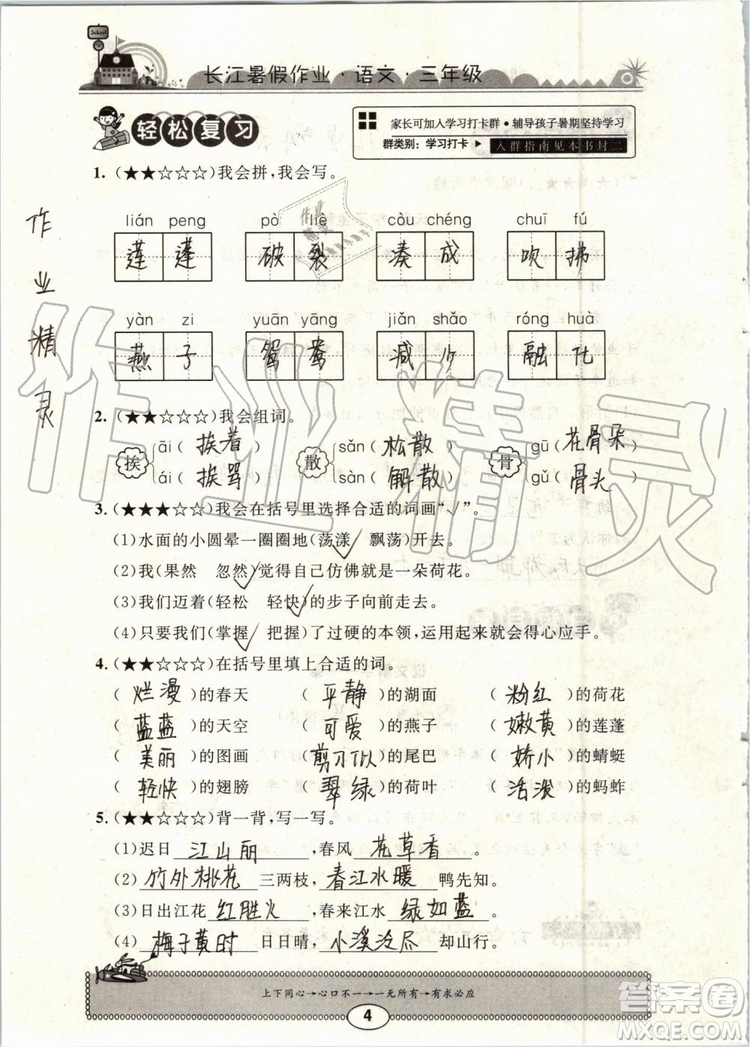 School
长江暑假作业·语文·三年级
轻松复习
家长可加入学习打卡群·辅导孩子暑期坚持学习
群类别：学习打卡 入群指南见本书封二
作业精灵
1.(★★☆☆☆)我会拼,我会写。
lián peng pò liè còu chéng chuī fú
莲 蓬 破 裂 凑 成 吹 拂
yàn zi yuān yāng jiǎn shǎo róng huà
燕 子 鸳 鸯 减 少 融 化
2.(★★☆☆☆)我会组词。
挨 āi(挨着) ái(挨骂)
散 sǎn(松散) sàn(解散)
骨 gū(花骨朵) gǔ(骨头)
3.(★★★☆☆)我会在括号里选择合适的词画“√”。
(1)水面的小圆晕一圈圈地(荡漾√ 飘荡)开去。
(2)我(果然 忽然√)觉得自己仿佛就是一朵荷花。
(3)我们迈着(轻松 轻快√)的步子向前走去。
(4)只要我们(掌握√ 把握)了过硬的本领,运用起来就会得心应手。
4.(★★☆☆☆)在括号里填上合适的词。
(烂漫)的春天 (平静)的湖面 (粉红)的荷花
(蓝蓝)的天空 (可爱)的燕子 (嫩黄)的莲蓬
(美丽)的图画 (剪刀似)的尾巴 (娇小)的蜻蜓
(轻快)的翅膀 (翠绿)的荷叶 (活泼)的蚂蚱
5.(★★☆☆☆)背一背,写一写。
(1)迟日江山丽,春风花草香。
(2)竹外桃花三两枝,春江水暖鸭先知。
(3)日出江花红胜火,春来江水绿如蓝。
(4)梅子黄时日日晴,小溪泛尽却山行。
上下同心→心口不一→一无所有→有求必应
4
作业精灵
答案圈
MXQE.COM